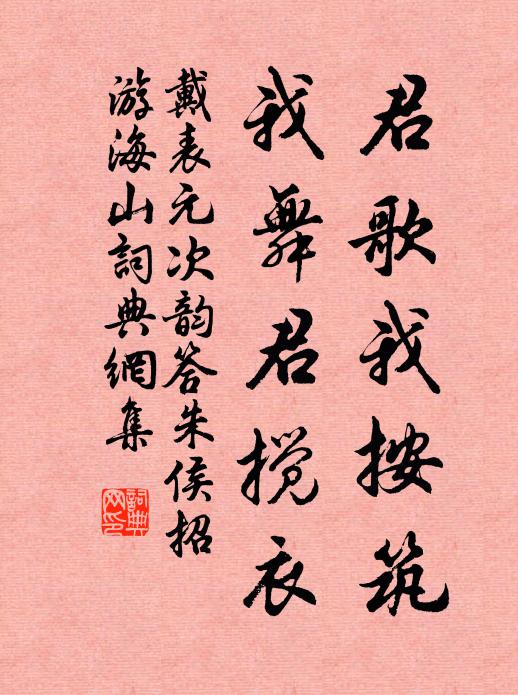 君歌我按筑
我舞君搅衣
戴表元次韵答朱侯招
游海山詞典網集
詞典網印